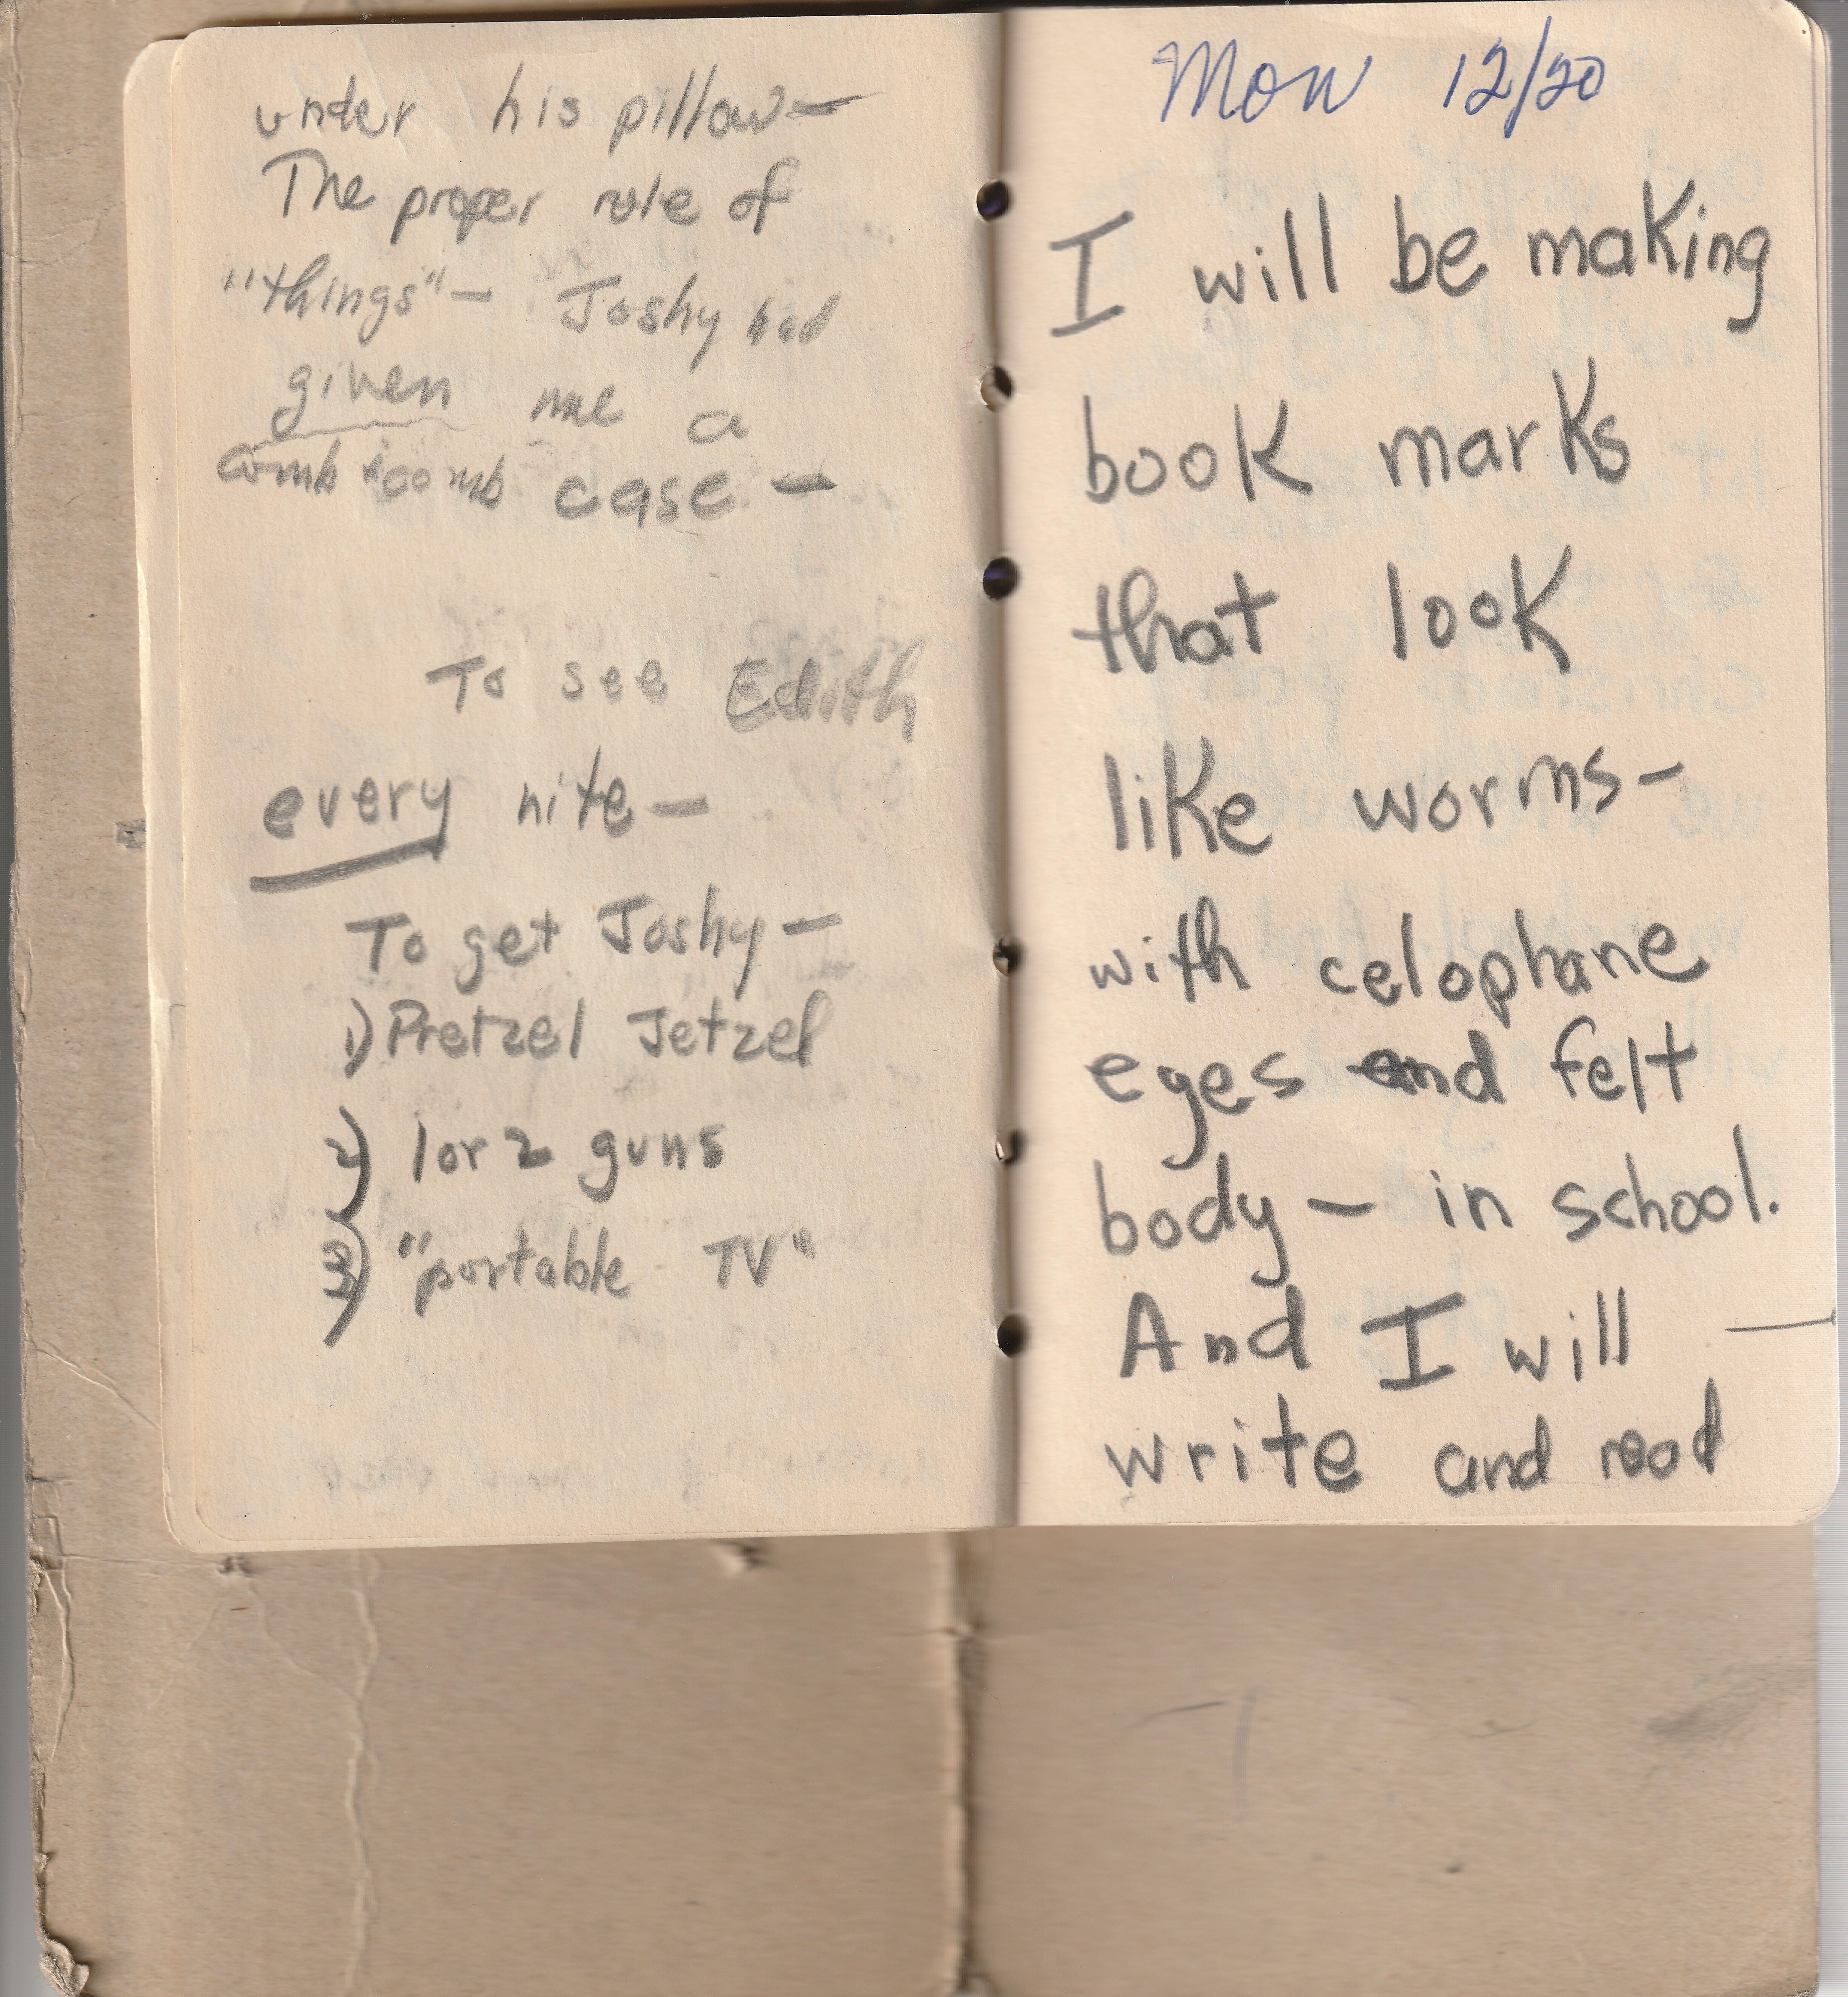 under his pillow—
The proper role of
"things"— Joshy had
given me a
comb & comb case —
To see Edith
every nite —
To get Joshy —
1) Pretzel Jetzel
2) 1 or 2 guns
3) "portable TV"
Mon 12/20
I will be making
book marks
that look
like worms-
with celophane
eyes and felt
body — in school.
And I will —
write and read